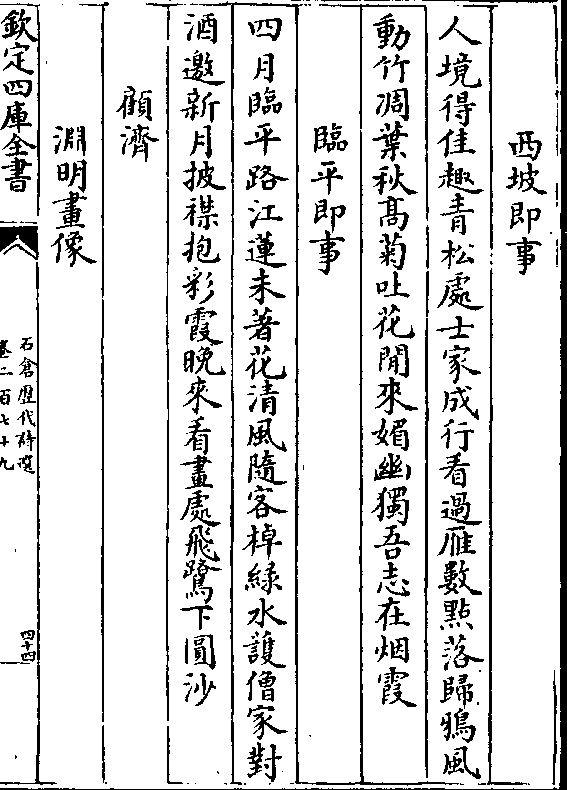 西坡即事
人境得佳趣青松處士家成行看過雁數點落歸鴉風
動竹凋葉秋髙菊吐花閒來媚幽獨吾志在烟霞
臨平即事
四月臨平路江蓮未著花清風隨客棹緑水護僧家對
酒邀新月披襟抱彩霞晚來看畫處飛鷺下圓沙
顧濟
淵明畫像
欽定四庫全書
石倉歴代詩選
卷二百七十九
四十四